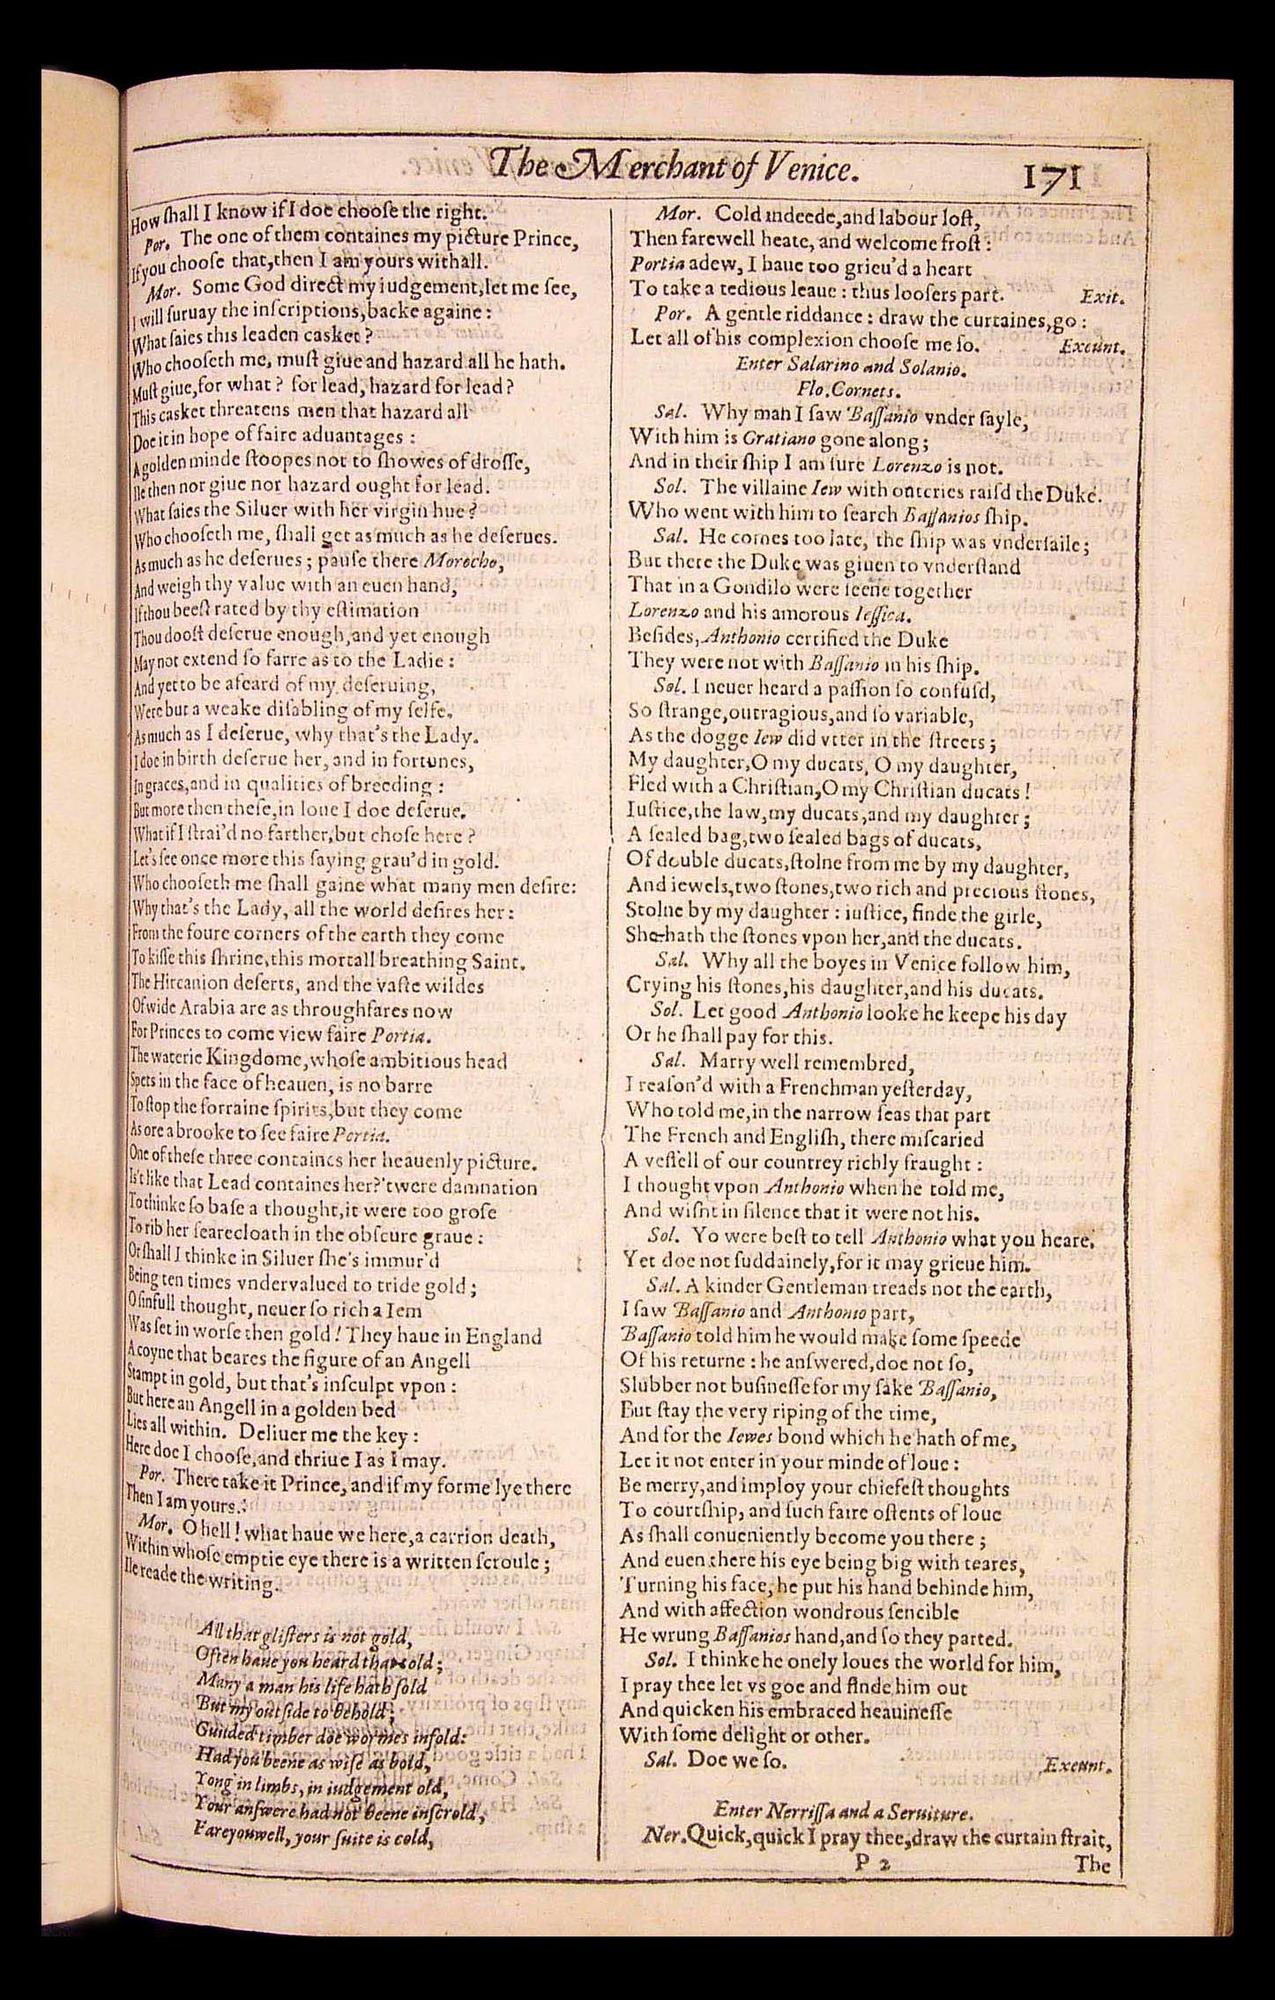 The Merchant of Venice.
171
How ſhall I know if I doe chooſe the right.
Por. The one of them containes my picture Prince,
If you chooſe that, then I am yours withall.
Mor. Some God direct my iudgement, let me ſee,
I will ſuruay the inſcriptions, backe againe :
What ſaies this leaden casket ?
Who chooſeth me, muſt giue and hazard all he hath.
Muſt giue, for what ? for lead, hazard for lead ?
This casket threatens men that hazard all
Doe it in hope of faire aduantages :
A golden minde ſtoopes not to ſhowes of droſſe,
Ile then nor giue nor hazard ought for lead.
What ſaies the Siluer with her virgin hue ?
Who chooſeth me, ſhall get as much as he deſerues.
As much as he deſerues ; pauſe there Morocho,
And weigh thy value with an euen hand,
If thou beeſt rated by thy eſtimation
Thou dooſt deſerue enough, and yet enough
May not extend ſo farre as to the Ladie :
And yet to be afeard of my deſeruing,
Were but a weake diſabling of my ſelfe.
As much as I deſerue, why that's the Lady.
I doe in birth deſerue her, and in fortunes,
In graces, and in qualities of breeding :
But more then theſe, in loue I doe deſerue.
What if I ſtrai'd no farther, but choſe here ?
Let's ſee once more this ſaying grau'd in gold.
Who chooſeth me ſhall gaine what many men deſire:
Why that's the Lady, all the world deſires her :
From the foure corners of the earth they come
To kiſſe this ſhrine, this mortall breathing Saint.
The Hircanion deſerts, and the vaſte wildes
Of wide Arabia are as throughfares now
For Princes to come view faire Portia.
The waterie Kingdome, whoſe ambitious head
Spets in the face of heauen, is no barre
To ſtop the forraine ſpirits, but they come
As ore a brooke to ſee faire Portia.
One of theſe three containes her heauenly picture.
Is't like that Lead containes her? 'twere damnation
To thinke ſo baſe a thought, it were too groſe
To rib her ſearecloath in the obſcure graue :
Or ſhall I thinke in Siluer ſhe's immur'd
Being ten times vndervalued to tride gold ;
O ſinfull thought, neuer ſo rich a Iem
Was ſet in worſe then gold ! They haue in England
A coyne that beares the figure of an Angell
Stampt in gold, but that's inſculpt vpon :
But here an Angell in a golden bed
Lies all within. Deliuer me the key :
Here doe I chooſe, and thriue I as I may.
Por. There take it Prince, and if my forme lye there
Then I am yours.
Mor. O hell ! what haue we here, a carrion death,
Within whoſe emptie eye there is a written ſcroule ;
Ile reade the writing.
All that gliſters is not gold,
Often haue you heard that told ;
Many a man his life hath ſold
But my outſide to behold ;
Guilded timber doe wormes infold:
Had you beene as wiſe as bold,
Yong in limbs, in iudgement old,
Your anſwere had not beene inſcrold,
Fareyouwell, your ſuite is cold,
Mor. Cold indeede, and labour loſt,
Then farewell heate, and welcome froſt :
Portia adew, I haue too grieu'd a heart
To take a tedious leaue : thus looſers part. Exit.
Por. A gentle riddance : draw the curtaines, go :
Let all of his complexion chooſe me ſo. Exeunt.
Enter Salarino and Solanio.
Flo. Cornets.
Sal. Why man I ſaw Baſſanio vnder ſayle,
With him is Gratiano gone along ;
And in their ſhip I am ſure Lorenzo is not.
Sol. The villaine Iew with outcries raiſd the Duke.
Who went with him to ſearch Baſſanios ſhip.
Sal. He comes too late, the ſhip was vnderſaile ;
But there the Duke was giuen to vnderſtand
That in a Gondilo were ſeene together
Lorenzo and his amorous Ieſſica.
Beſides, Anthonio certified the Duke
They were not with Baſſanio in his ſhip.
Sol. I neuer heard a paſſion ſo confuſd,
So ſtrange, outragious, and ſo variable,
As the dogge Iew did vtter in the ſtreets ;
My daughter, O my ducats, O my daughter,
Fled with a Chriſtian, O my Chriſtian ducats !
Iuſtice, the law, my ducats, and my daughter ;
A ſealed bag, two ſealed bags of ducats,
Of double ducats, ſtolne from me by my daughter,
And iewels, two ſtones, two rich and precious ſtones,
Stolne by my daughter : iuſtice, finde the girle,
She hath the ſtones vpon her, and the ducats.
Sal. Why all the boyes in Venice follow him,
Crying his ſtones, his daughter, and his ducats.
Sol. Let good Anthonio looke he keepe his day
Or he ſhall pay for this.
Sal. Marry well remembred,
I reaſon'd with a Frenchman yeſterday,
Who told me, in the narrow ſeas that part
The French and Engliſh, there miſcaried
A veſſell of our countrey richly fraught :
I thought vpon Anthonio when he told me,
And wiſht in ſilence that it were not his.
Sol. Yo were beſt to tell Anthonio what you heare.
Yet doe not ſuddainely, for it may grieue him.
Sal. A kinder Gentleman treads not the earth,
I ſaw Baſſanio and Anthonio part,
Baſſanio told him he would make ſome ſpeede
Of his returne : he anſwered, doe not ſo,
Slubber not buſineſſe for my ſake Baſſanio,
But ſtay the very riping of the time,
And for the Iewes bond which he hath of me,
Let it not enter in your minde of loue :
Be merry, and imploy your chiefeſt thoughts
To courtſhip, and ſuch faire oſtents of loue
As ſhall conueniently become you there ;
And euen there his eye being big with teares,
Turning his face, he put his hand behinde him,
And with affection wondrous ſencible
He wrung Baſſanios hand, and ſo they parted.
Sol. I thinke he onely loues the world for him,
I pray thee let vs goe and finde him out
And quicken his embraced heauineſſe
With ſome delight or other.
Sal. Doe we ſo. Exeunt.
Enter Nerriſſa and a Seruiture.
Ner. Quick, quick I pray thee, draw the curtain ſtrait,
P 2 The